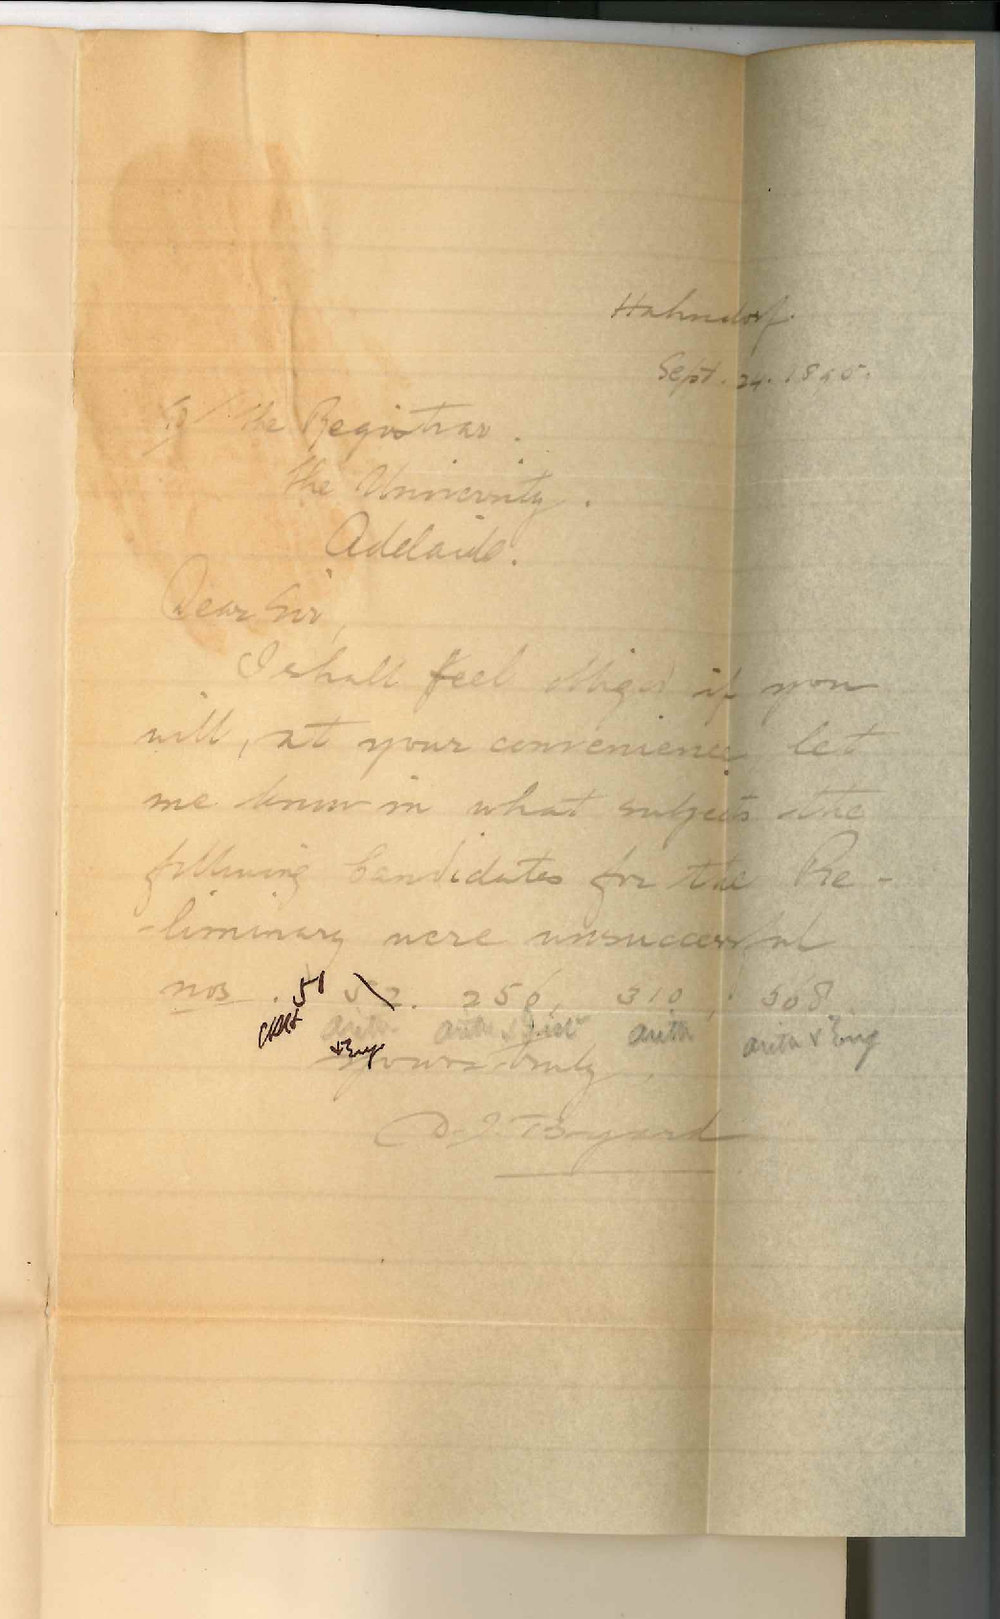 Hahndorf.
Sept. 24. 1895.
To/ the Registrar.
The University.
Adelaide.
Dear Sir,
I shall feel obliged if you
will, at your convenience let
me know in what subjects the
following Candidates for the Pre-
-liminary were unsuccessful
nos. 51 52. 256, 310, 508
arith. arith & arith arith & Eng
& Eng
Yours truly,
D. J. Byard